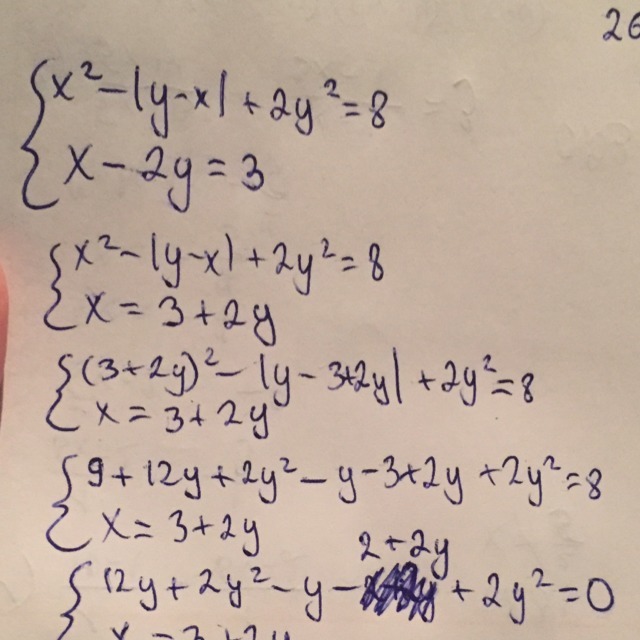 26
x² - |y-x| + 2y² = 8
x - 2y = 3
x² - |y-x| + 2y² = 8
x = 3 + 2y
(3+2y)² - |y - 3+2y| + 2y² = 8
x = 3 + 2y
9 + 12y + 2y² - y - 3+2y + 2y² = 8
x = 3 + 2y
2 + 2y
12y + 2y² - y - + 2y² = 0
x = 3 + 2y